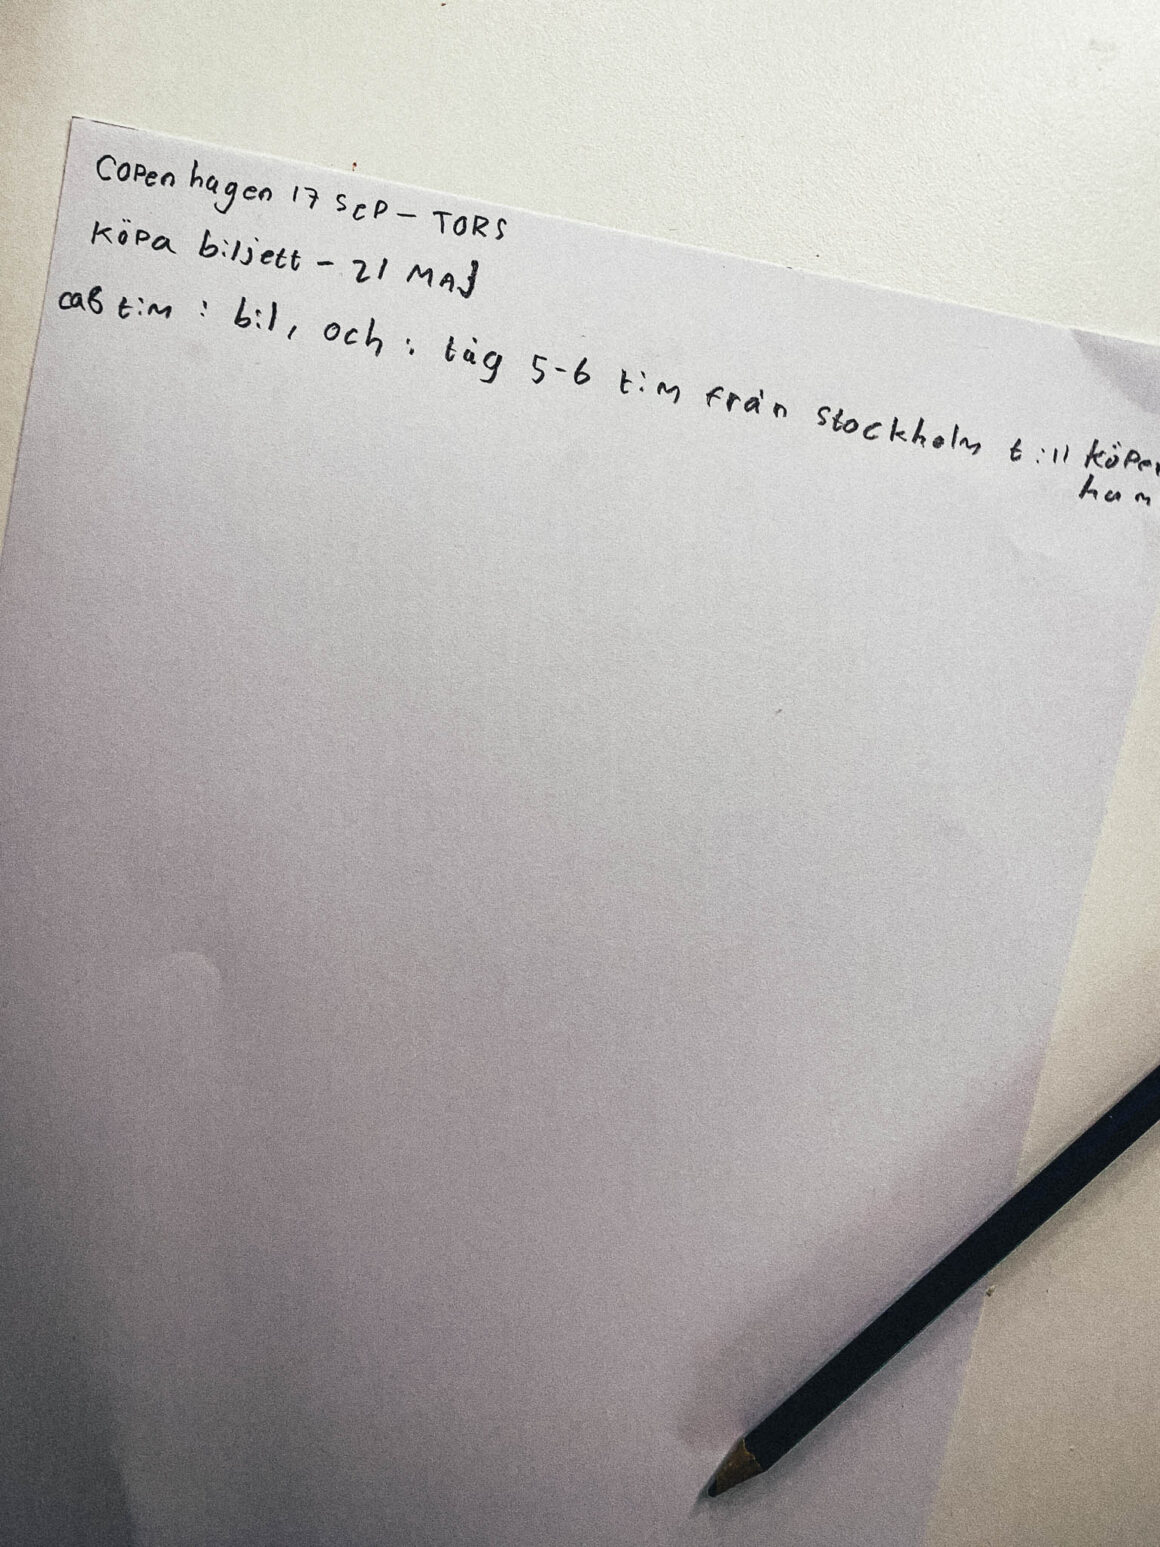 Copenhagen 17 SEP - TORS
Köpa biljett - 21 MAJ
tim : bil, och : tåg 5-6 tim från Stockholm till Köpen
ham